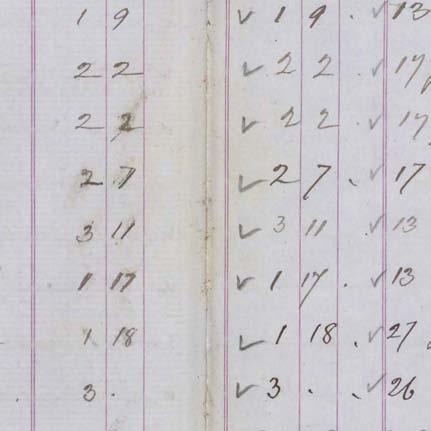 1 9 ✓ 1 9 . ✓ 13
2 2 ✓ 2 2 ✓ 17
2 2 ✓ 2 2 ✓ 17
2 7 ✓ 2 7 . ✓ 17
3 11 ✓ 3 11 ✓ 13
1 17 ✓ 1 17 . ✓ 13
1 18 ✓ 1 18 . ✓ 27
3 . ✓ 3 . . ✓ 26